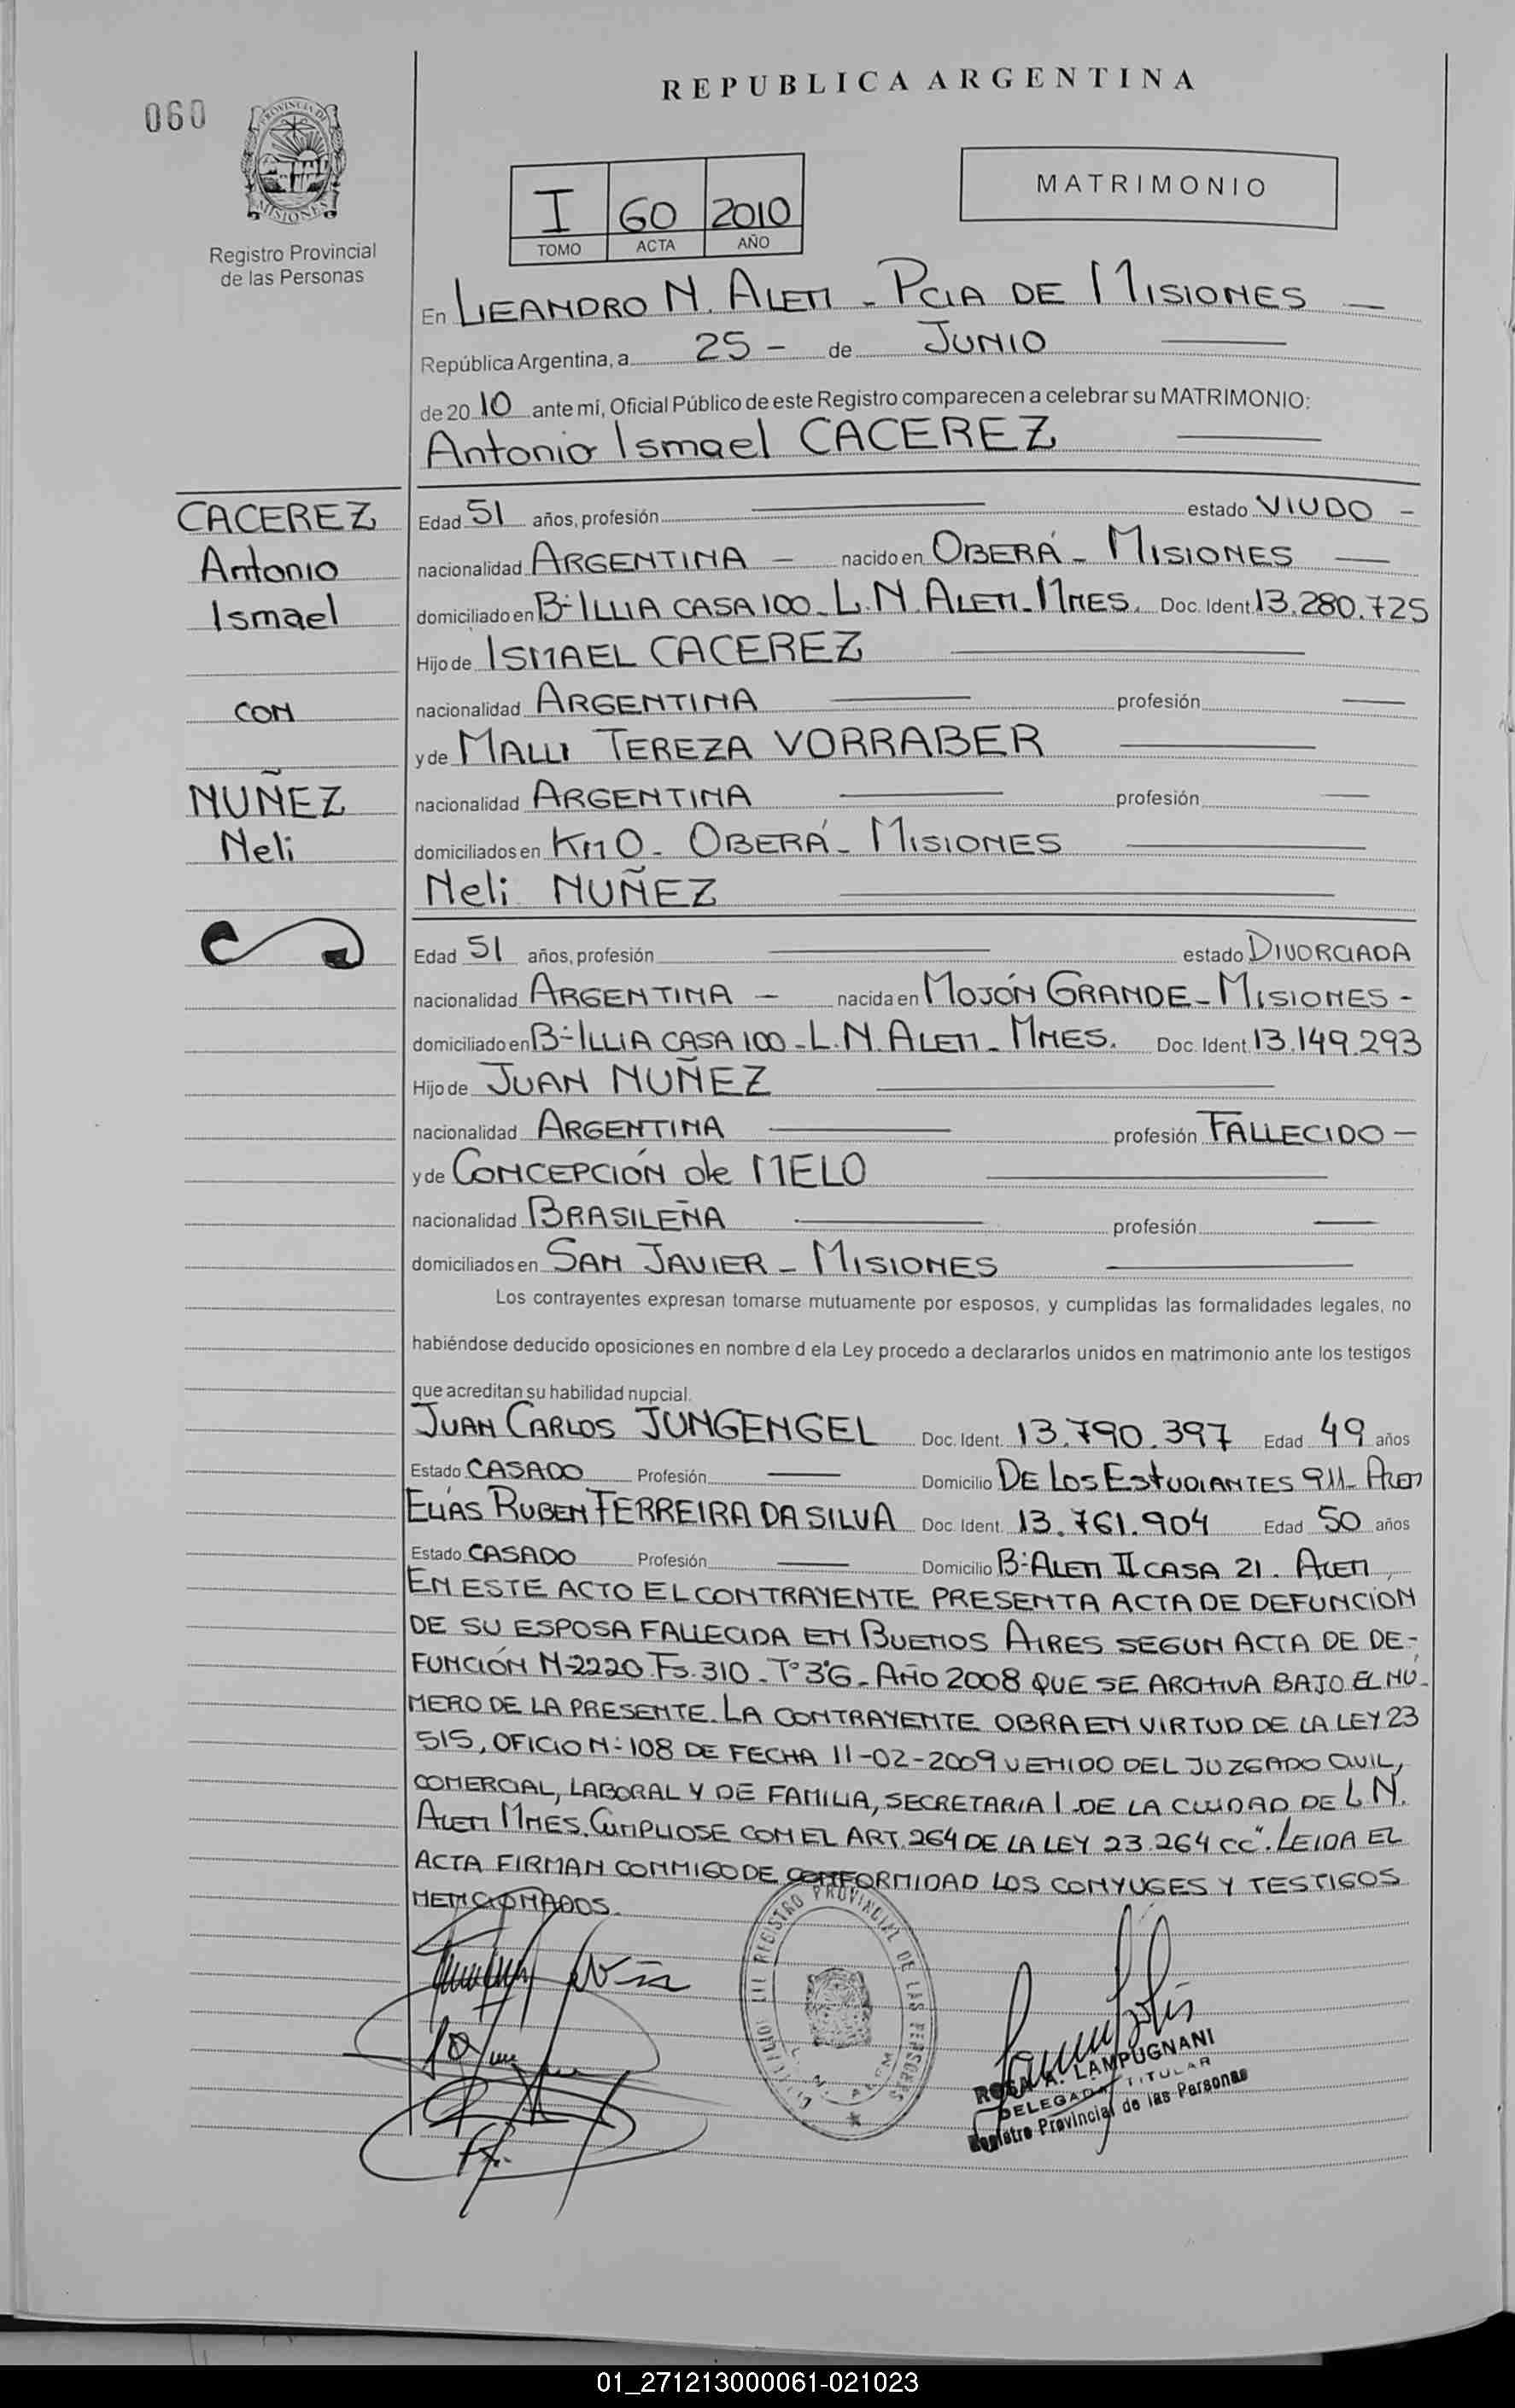 REPUBLICA ARGENTINA
060
PROVINCIA DE
MISIONES
Registro Provincial
de las Personas
MATRIMONIO
I 60 2010
TOMO ACTA AÑO
En LEANDRO N. ALEM - PCIA DE MISIONES —
República Argentina, a 25 - de JUNIO —
de 20 10 ante mí, Oficial Público de este Registro comparecen a celebrar su MATRIMONIO:
Antonio Ismael CACEREZ —
CACEREZ
Antonio
Ismael
CON
NUÑEZ
Neli
Edad 51 años, profesión — estado VIUDO -
nacionalidad ARGENTINA — nacido en OBERÁ - MISIONES —
domiciliado en B- ILLIA CASA 100 - L.N. ALEM - MNES. Doc. Ident. 13.280.725
Hijo de ISMAEL CACEREZ —
nacionalidad ARGENTINA — profesión —
y de MALLI TEREZA VORRABER —
nacionalidad ARGENTINA — profesión —
domiciliados en KM 0 - OBERÁ - MISIONES —
Neli NUÑEZ —
Edad 51 años, profesión — estado DIVORCIADA
nacionalidad ARGENTINA — nacida en MOJÓN GRANDE - MISIONES -
domiciliado en B- ILLIA CASA 100 - L.N. ALEM - MNES. Doc. Ident. 13.149.293
Hijo de JUAN NUÑEZ —
nacionalidad ARGENTINA — profesión FALLECIDO —
y de CONCEPCIÓN de MELO —
nacionalidad BRASILEÑA — profesión —
domiciliados en SAN JAVIER - MISIONES —
Los contrayentes expresan tomarse mutuamente por esposos, y cumplidas las formalidades legales, no
habiéndose deducido oposiciones en nombre d ela Ley procedo a declararlos unidos en matrimonio ante los testigos
que acreditan su habilidad nupcial.
JUAN CARLOS JUNGENGEL Doc. Ident. 13.790.397 Edad 49 años
Estado CASADO Profesión — Domicilio DE LOS ESTUDIANTES 911 - ALEM
ELÍAS RUBEN FERREIRA DA SILVA Doc. Ident. 13.761.904 Edad 50 años
Estado CASADO Profesión — Domicilio B- ALEM II CASA 21. ALEM,
EN ESTE ACTO EL CONTRAYENTE PRESENTA ACTA DE DEFUNCIÓN
DE SU ESPOSA FALLECIDA EN BUENOS AIRES SEGUN ACTA DE DE-
FUNCIÓN N-2220. Fs. 310 - T° 3°G - AÑO 2008 QUE SE ARCHIVA BAJO EL NÚ-
MERO DE LA PRESENTE. LA CONTRAYENTE OBRA EN VIRTUD DE LA LEY 23
515, OFICIO N- 108 DE FECHA 11-02-2009 VENIDO DEL JUZGADO CIVIL,
COMERCIAL, LABORAL Y DE FAMILIA, SECRETARIA 1 DE LA CIUDAD DE L.N.
ALEM MNES. CUMPLIOSE CON EL ART. 264 DE LA LEY 23.264 CC". LEIDA EL
ACTA FIRMAN CONMIGO DE CONFORMIDAD LOS CONYUGES Y TESTIGOS
MENCIONADOS.
REGISTRO PROVINCIAL DE LAS PERSONAS
L. N. ALEM
ROSA A. LAMPUGNANI
DELEGADA TITULAR
Registro Provincial de las Personas
01_271213000061-021023